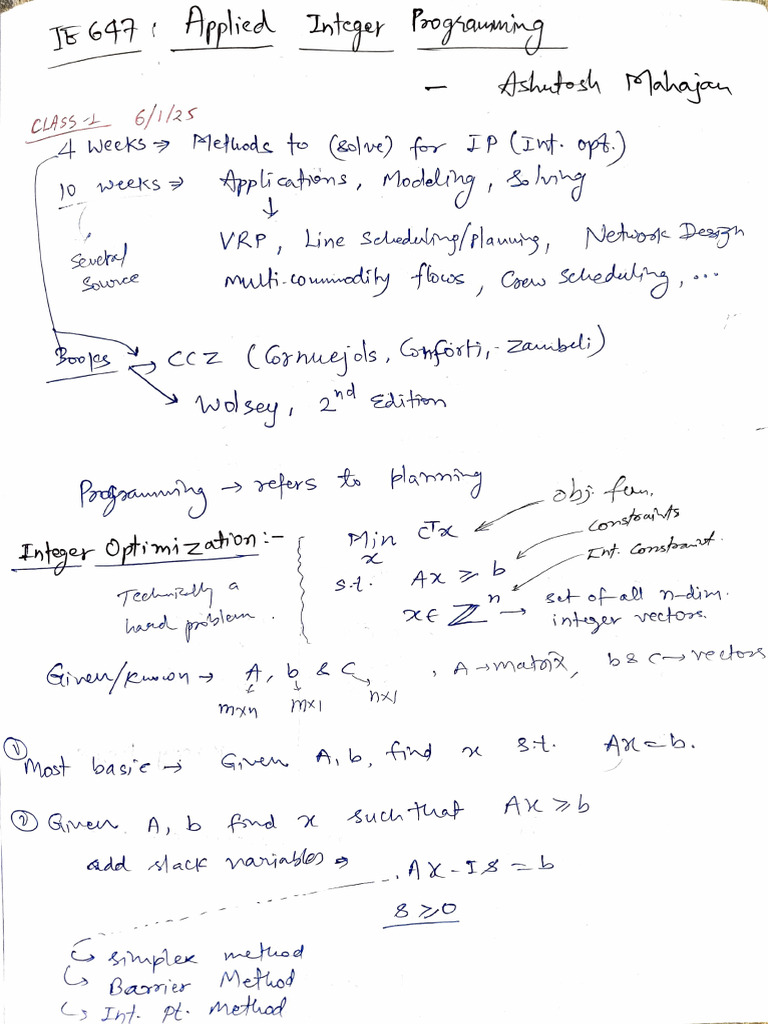 IE 647: Applied Integer Programming
- Ashutosh Mahajan
CLASS-1 6/1/25
4 Weeks ⇒ Methods to (solve) for IP (Int. opt.)
10 weeks ⇒ Applications, Modeling, Solving
↓
Several source
VRP, Line Scheduling/planning, Network Design
Multi-commodity flows, Crew scheduling, ...
Books → CCZ (Cornuejols, Conforti, Zambeli)
→ Wolsey, 2nd Edition
Programming → refers to planning
Integer Optimization:-
Technically a
hard problem.
Min x cᵀx ← obj. fun.
s.t. Ax ≥ b ← Constraints
x ∈ ℤⁿ ← Int. Constraint.
→ set of all n-dim.
integer vectors.
Given/Known → A, b & C, A → matrix, b & c → vectors
m×n m×1 n×1
① Most basic → Given A, b, find x s.t. Ax = b.
② Given A, b find x such that Ax ≥ b
add slack variables ⇒ Ax - Is = b
s ≥ 0
↳ simplex method
↳ Barrier Method
↳ Int. pt. Method